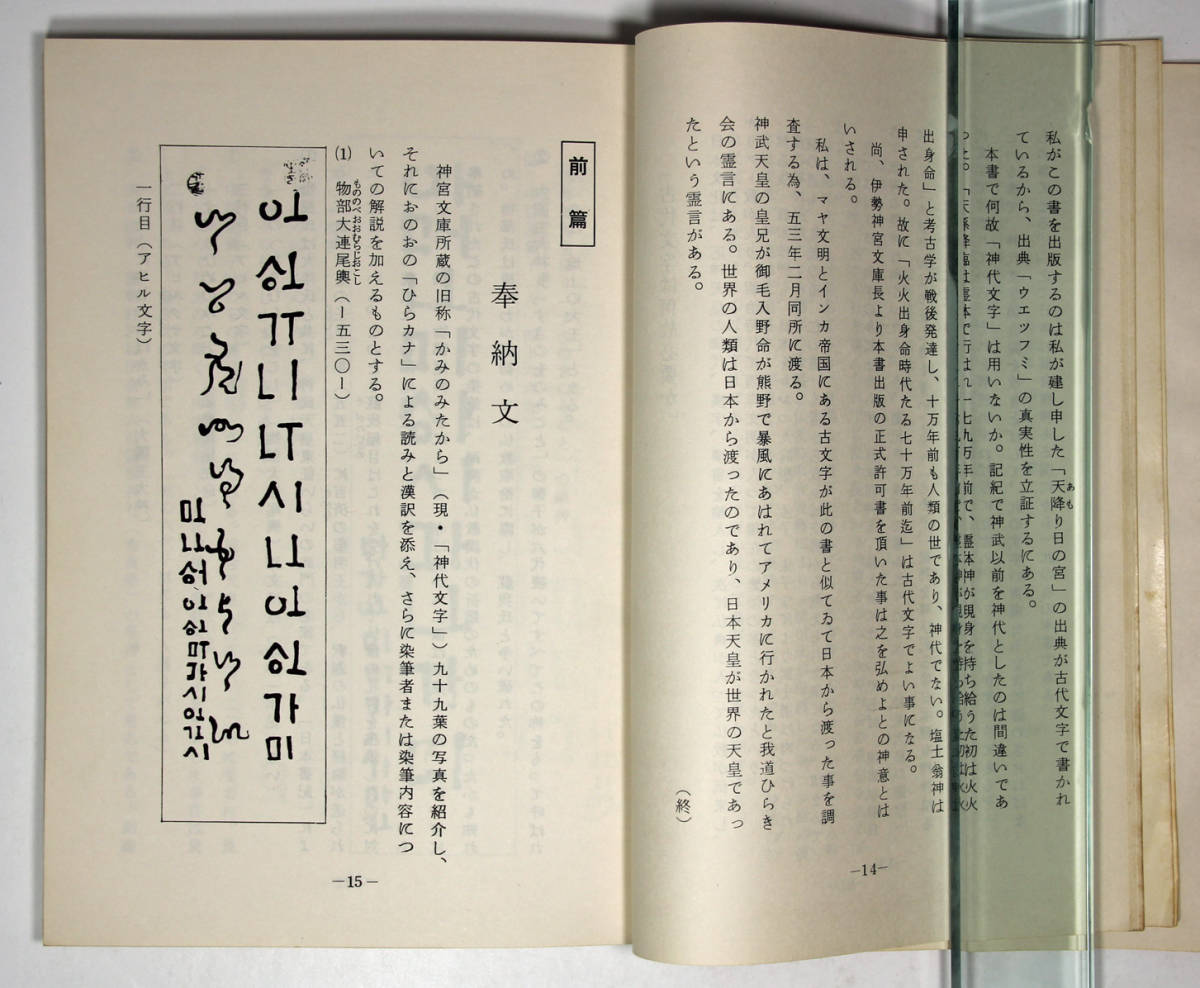 私がこの書を出版するのは私が建し申した「天降り日の宮」の出典が古代文字で書かれ
あも
ているから、出典「ウエツフミ」の真実性を立証するにある。
本書で何故「神代文字」は用いないか。記紀で神武以前を神代としたのは間違いであ
出身命」と考古学が戦後発達し、十万年前も人類の世であり、神代でない。塩土翁神は
申された。故に「火火出身命時代たる七十万年前迄」は古代文字でよい事になる。
尚、伊勢神宮文庫長より本書出版の正式許可書を頂いた事は之を弘めよとの神意とは
いされる。
私は、マヤ文明とインカ帝国にある古文字が此の書と似てゐて日本から渡った事を調
査する為、五三年二月同所に渡る。
神武天皇の皇兄が御毛入野命が熊野で暴風にあはれてアメリカに行かれたと我道ひらき
会の霊言にある。世界の人類は日本から渡ったのであり、日本天皇が世界の天皇であっ
たという霊言がある。
(終)
—14—
前篇
奉納文
神宮文庫所蔵の旧称「かみのみたから」(現・「神代文字」)九十九葉の写真を紹介し、
それにおのおの「ひらカナ」による読みと漢訳を添え、さらに染筆者または染筆内容につ
いての解説を加えるものとする。
(1) 物部大連尾輿(ー五三〇ー)
もののべおおむらじおこし
一行目(アヒル文字)
—15—